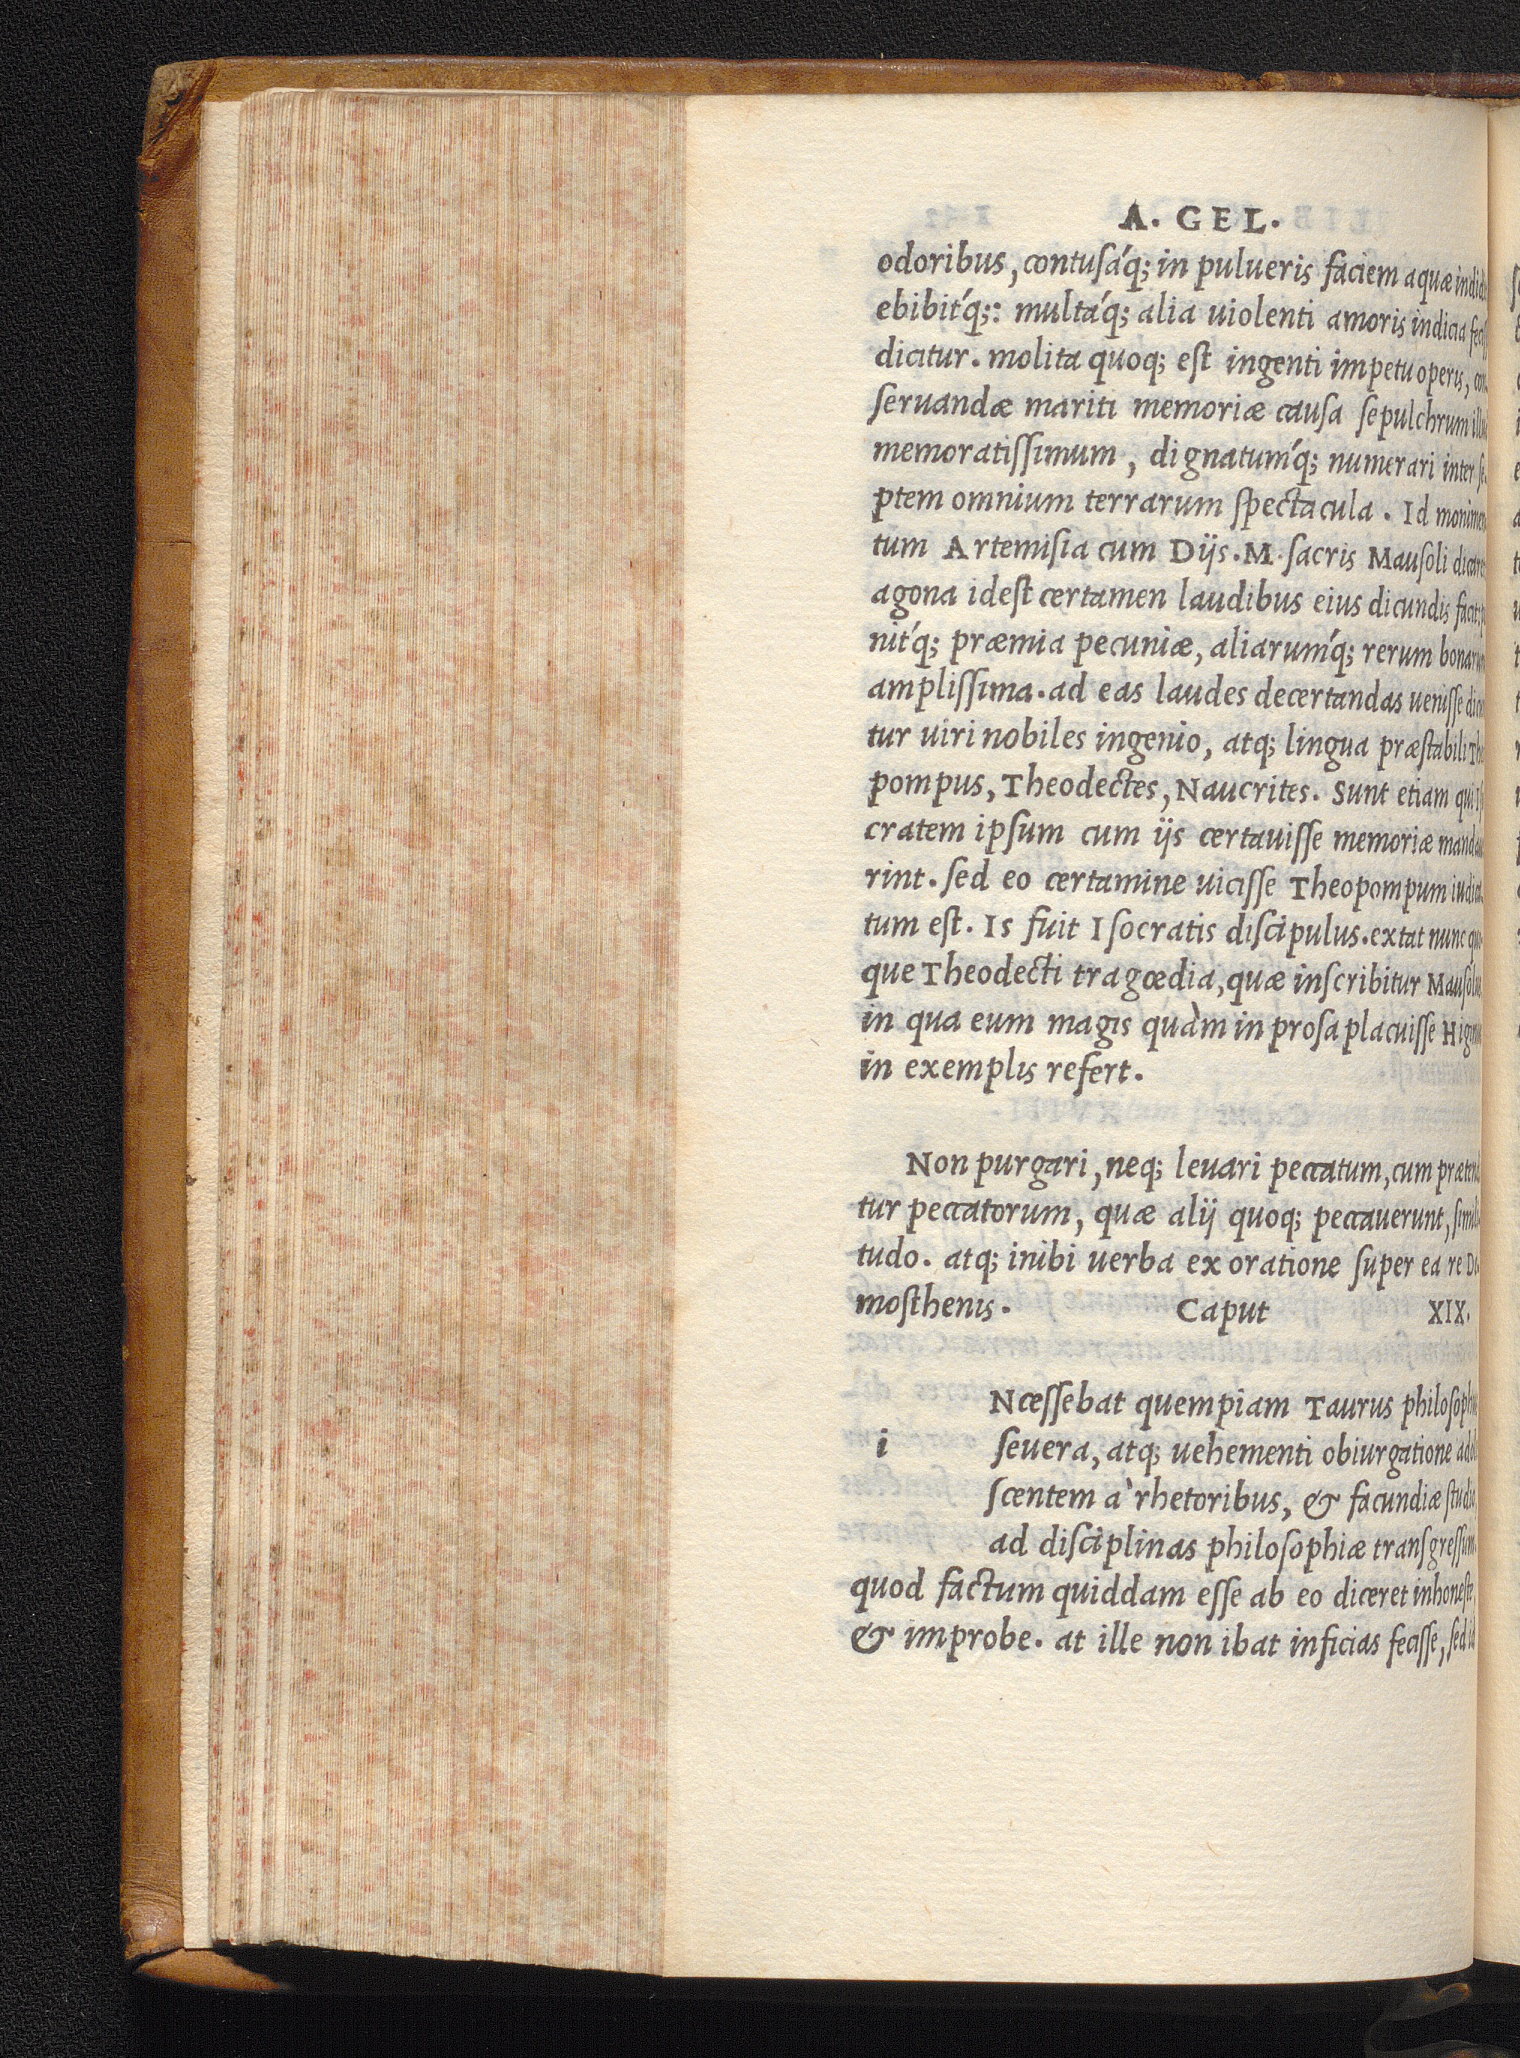 A. GEL.
odoribus, contusáq; in pulueris faciem aquæ
ebibitq́;: multáq; alia uiolenti amoris indicia
dicitur. molita quoq; est ingenti impetu operis,
seruandæ mariti memoriæ causa sepulchrum
memoratissimum, dignatumq́; numerari inter
ptem omnium terrarum spectacula. Id
tum Artemisia cum Diis. M. sacris Mausoli
agona idest certamen laudibus eius dicundis
nitq́; præmia pecuniæ, aliarumq́; rerum
amplissima. ad eas laudes decertandas uenisse
tur uiri nobiles ingenio, atq; lingua præstabili
pompus, Theodectes, Naucrites. Sunt etiam qui
cratem ipsum cum iis certauisse memoriæ
rint. sed eo certamine uicisse Theopompum
tum est. Is fuit Isocratis discipulus. extat nunc
que Theodecti tragœdia, quæ inscribitur
in qua eum magis quàm in prosa placuisse
in exemplis refert.
Non purgari, neq; leuari peccatum, cum
tur peccatorum, quæ alij quoq; peccauerunt,
tudo. atq; inibi uerba ex oratione super ea re
mosthenis. Caput XIX.
Ncessebat quempiam Taurus
i seuera, atq; uehementi obiurgatione
scentem à rhetoribus, & facundiæ
ad disciplinas philosophiæ
quod factum quiddam esse ab eo diceret
& improbe. at ille non ibat inficias fecisse, sed id